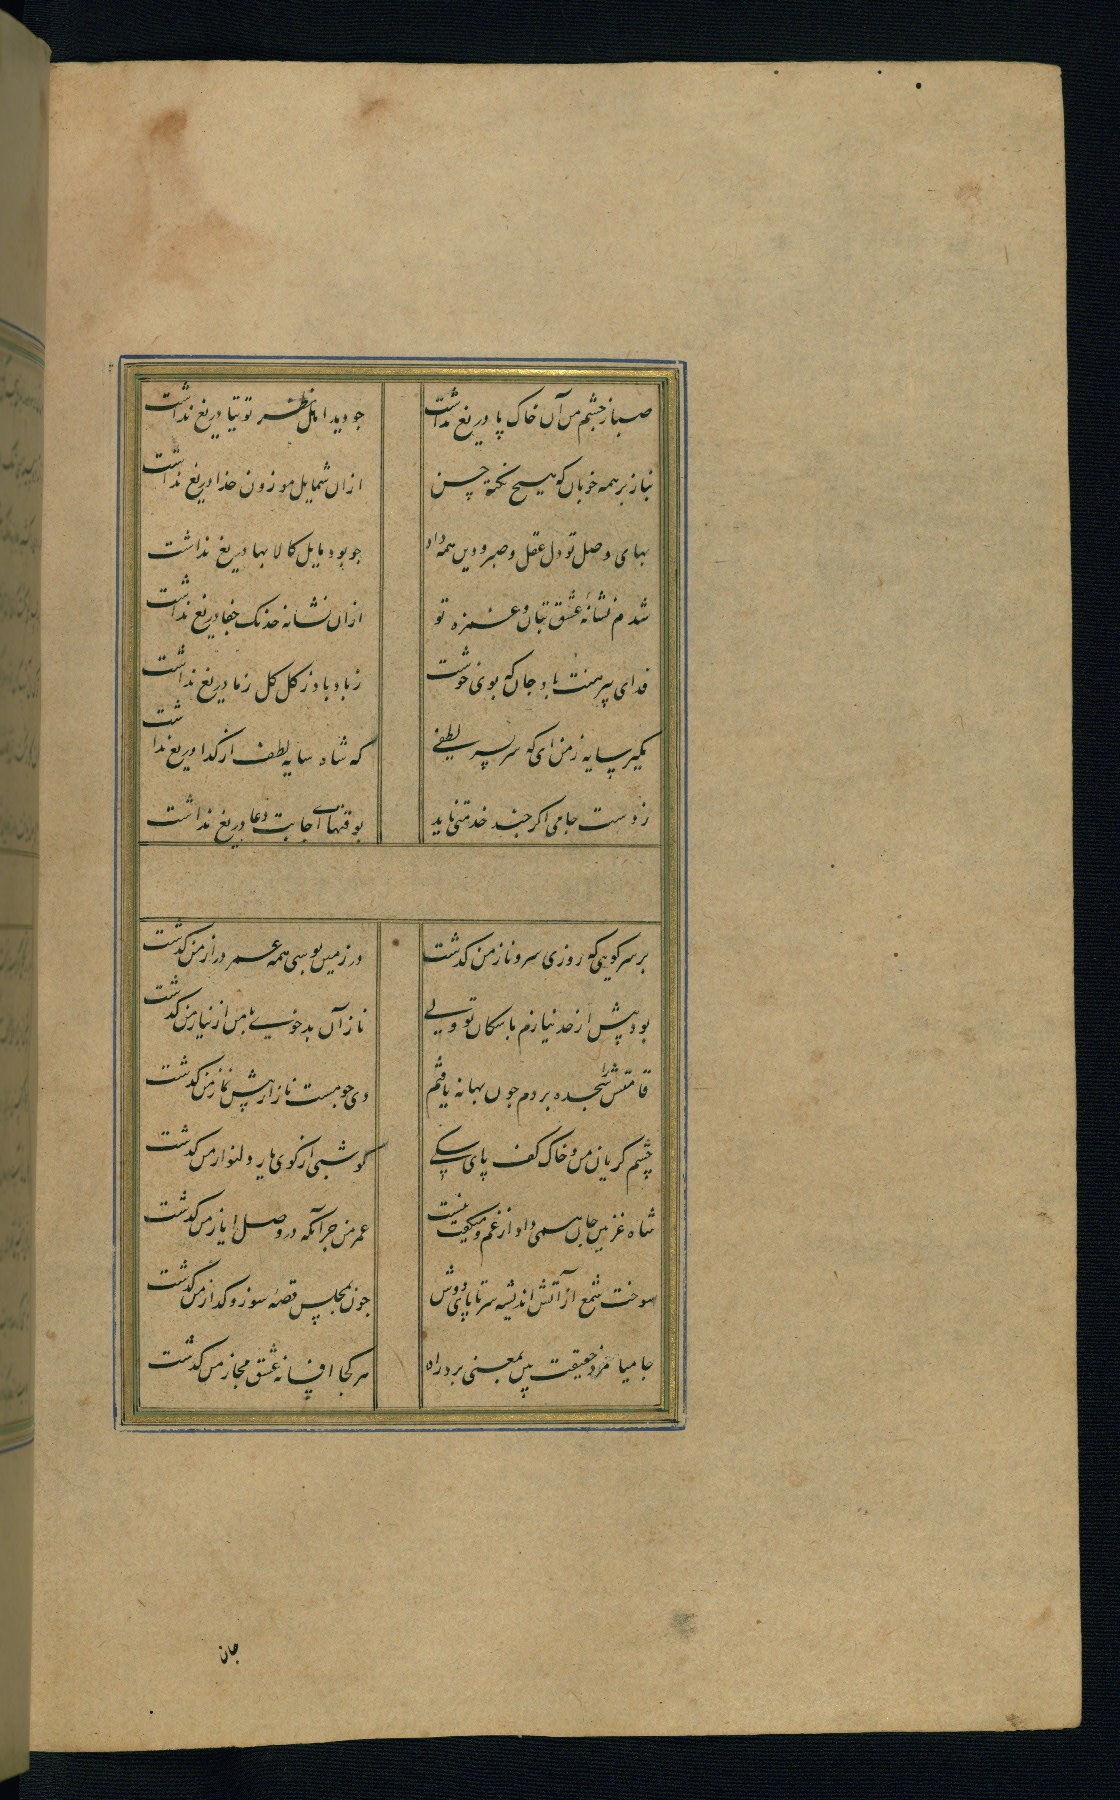 صبا ز چشم من آن خاک پا دریغ نداشت جو دید اهل نظر توتیا دریغ نداشت
نیاز بر همه خوبان که هیچ نکته حسن ازان شمایل موزون خدا دریغ نداشت
بهای وصل تو دل عقل و صبر و دین همه داد جو بود مایل کالا بها دریغ نداشت
شدم نشانهٔ عشق بتان و غمزه تو ازان نشانه خدنک جفا دریغ نداشت
فدای پیرهنت باد جان که بوی خوشت ز باد باد ز کل کل ز ما دریغ نداشت
مکیر سایه ز من ای که سر بسر لطفی که شاه سایه لطف از کدا دریغ نداشت
ز دست جامی اکر جند خدمتی ناید بوقتهای اجابت دعا دریغ نداشت
بر سر کویی که روزی سرو ناز من کذشت در زمین بوسی همه عمر دراز من کذشت
بود پیش از حد نیازم با سکان تو ولی ناز آن بدخوی با من از نیاز من کذشت
قامتش را سجده بردم جون بهانه یافتم دی جو مست ناز از پیش نماز من کذشت
چشم کریان من و خاک کف پای سکی کو شبی از کوی یار دلنواز من کذشت
شاه غزنین جان همی داد از غم و میکفت نیست عمر من جز آنکه در وصل ایاز من کذشت
سوخت شمع از آتش اندیشه سر تا پای دوش جون بمجلس قصهٔ سوز و کداز من کذشت
جامیا مرد حقیقت بین بمعنی برد راه هر کجا افسانه عشق مجاز من کذشت
جان